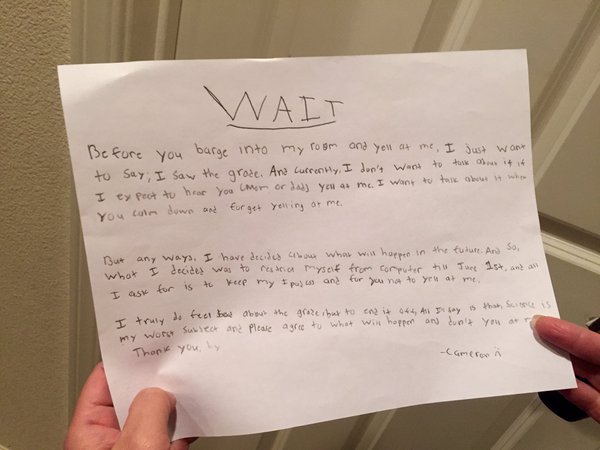 WAIT
Before you barge into my room and yell at me, I Just want
to say, I saw the grade. And currently, I don't want to talk about it if
I expect to hear you (Mom or dad) yell at me. I want to talk about it when
you calm down and forget yelling at me.
But any ways, I have decided about what will happen in the future. And so,
what I decided was to restrict myself from computer till June 1st, and all
I ask for is to keep my and for you not to yell at me.
I truly do feel bad about the grade, but to end it off, All I'll say is that, Science is
my worst subject and please agree to what will happen and don't yell at me.
Thank you, by
-Cameron